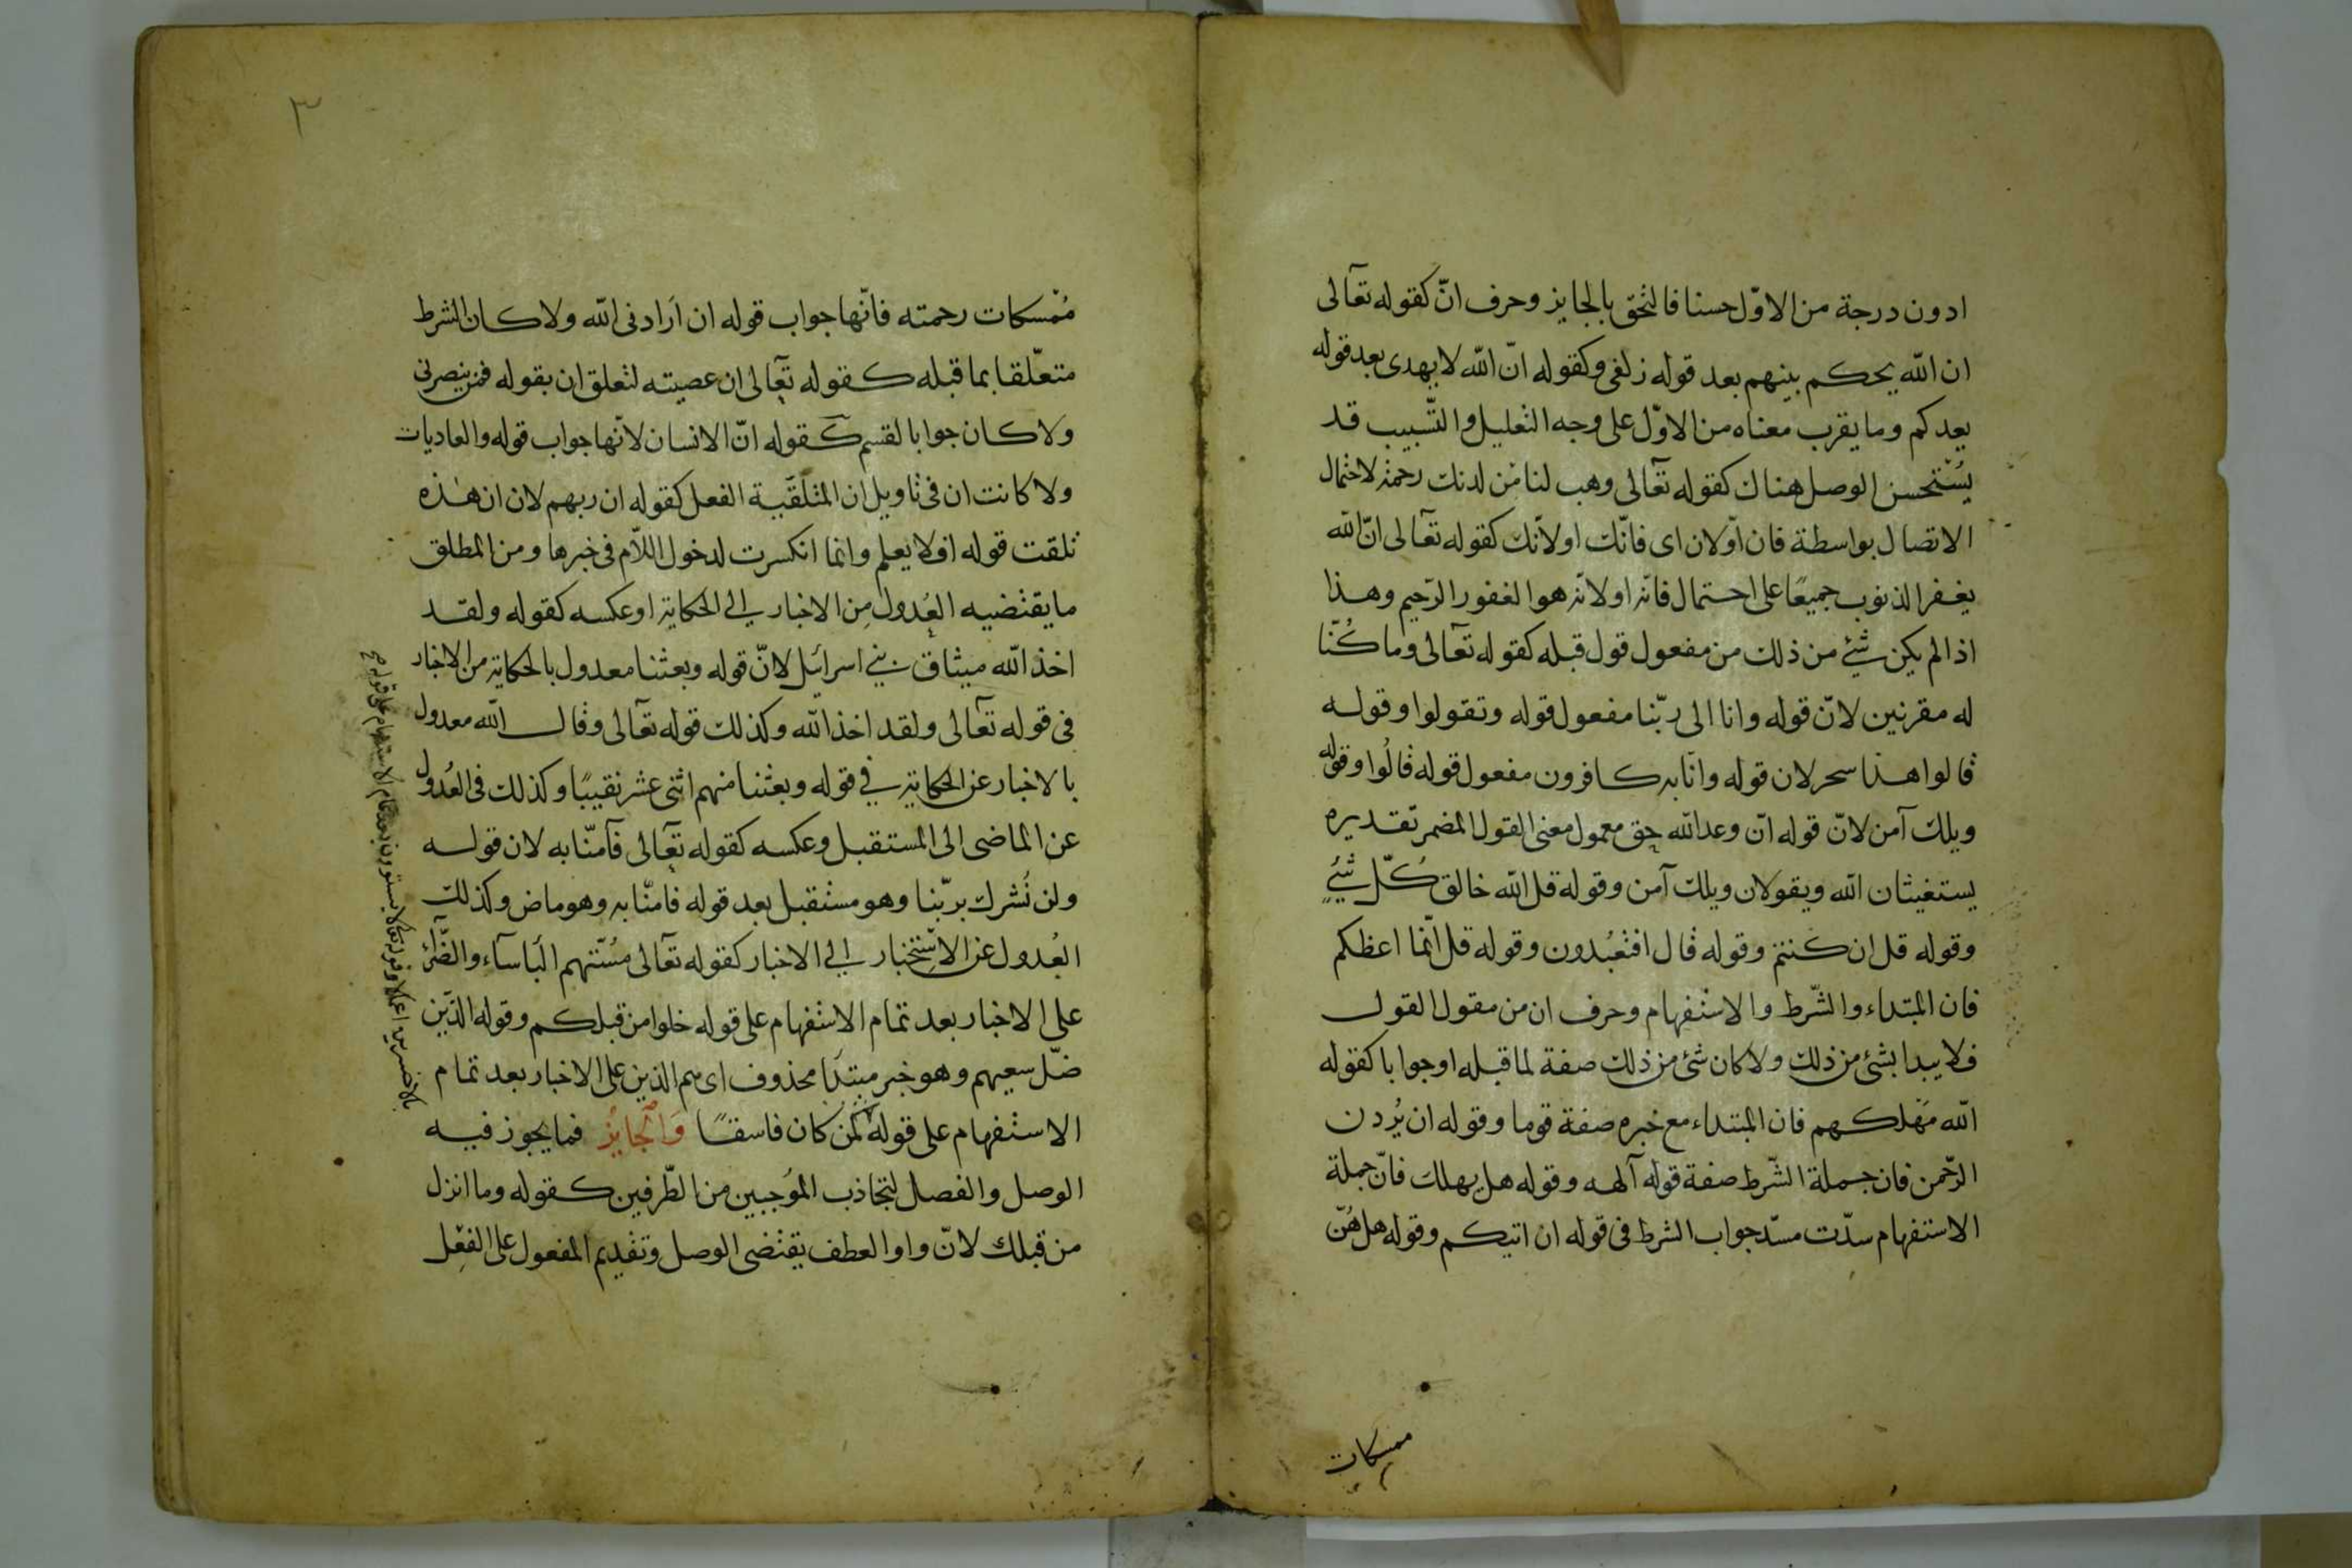 ادون درجة من الاوّل حسنا فالتحق بالجايز وحرف انّ كقوله تعالى
ان الله يحكم بينهم بعد قوله زلفى وكقوله انّ الله لا يهدى بعد قوله
يعدكم وما يقرب معناه من الاوّل على وجه التعليل والتّسبيب قد
يُسْتحسن الوصل هناك كقوله تعالى وهب لنا من لدنك رحمة لاحتمال
الاتصال بواسطة فان اولان اى فانّك او لانّك كقوله تعالى انّ الله
يغفر الذنوب جميعًا على احتمال فانّه او لانّه هو الغفور الرّحيم وهذا
اذا لم يكن شئ من ذلك من مفعول قول قبله كقوله تعالى وما كُنّا
له مقرنين لانّ قوله وانا الى ربّنا مفعول قوله وتقولوا وقوله
قالوا هذا سحر لان قوله وانّا به كافرون مفعول قوله قالُوا وقوله
ويلك آمن لانّ قوله انّ وعد الله حق معمول معنى القول المضمر تقديره
يستغيثان الله ويقولان ويلك آمن وقوله قل الله خالق كُلّ شئٍ
وقوله قل ان كنتم وقوله قال افتعبُدون وقوله قل انّما اعظكم
فان المبتداء والشّرط والاستفهام وحرف ان من مقول القول
فلا يبدا بشئ من ذلك ولا كان شئ من ذلك صفة لما قبله او جوابا كقوله
الله مَهْلكهم فان المبتداء مع خبره صفة قوما وقوله ان يُردن
الرّحمن فان جملة الشّرط صفة قوله آلهه وقوله هل يهلك فانّ جملة
الاستفهام سدّت مسدّ جواب الشرط فى قوله ان اتيكم وقوله هل هُنّ
ممسكات
٣
مُمْسكات رحمته فانّها جواب قوله ان اَرادنى الله ولا كان الشرط
متعلّقا بما قبله كقوله تعالى ان عصيته لتعلق ان بقوله فمن ينصرنى
ولا كان جوابا لقسم كقوله انّ الانسان لانّها جواب قوله والعاديات
ولا كانت ان فى تاويل ان المتلَقّية الفعل كقوله ان ربهم لان ان هٰذه
تلقت قوله افلا يعلم وانما انكسرت لدخول اللاّم فى خبرها ومن المطلق
ما يقتضيه العُدول مِن الاخبار الى الحكاية او عكسه كقوله ولقد
اخذ الله ميثاق بنى اسرائيل لانّ قوله وبعثنا معدول بالحكاية من الاخبار
فى قوله تعالى ولقد اخذ الله وكذلك قوله تعالى وقال الله معدول
بالاخبار عن الحكاية فى قوله وبعثنا منهم اثنى عشر نقيبًا وكذلك فى العُدول
عن الماضى الى المستقبل وعكسه كقوله تعالى فآمنّا به لان قوله
ولن نُشرك بربّنا وهو مستقبل بعد قوله فامنّا به وهو ماض وكذلك
العُدول عن الاسْتِخبار الى الاخبار كقوله تعالى مسّتهم الباسآء والضّرّاء
على الاخبار بعد تمام الاستفهام على قوله خلوا من قبلكم وقوله الذّين
ضلّ سعيهم وهو خبر مبتدَا محذوف اى هم الذين على الاخبار بعد تمام
الاستفهام على قوله كمن كان فاسقًا وَالْجايزُ فما يجوز فيه
الوصل والفصل لتجاذب المُوجبين من الطّرفين كقوله وما انزل
من قبلك لانّ واو العطف يقتضى الوصل وتقديم المفعول على الفعِْل
بالاخسرين اعمالا وقوله تعالى لا يستوون بعد تمام الاستفهام على قوله